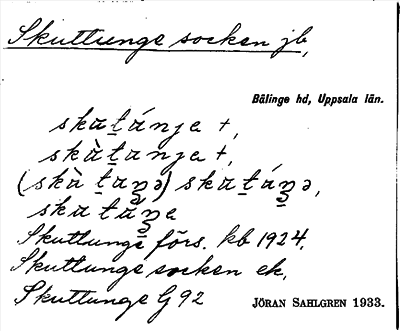 Skuttunge socken jb,
Bälinge hd, Uppsala län.
skat̠ánja +,
skàt̠anja +,
(skàt̠aŋ̮ə) skat̠áŋ̮ə,
skatáŋ̮e
Skuttunge förs. kb 1924.
Skuttunge socken ek.
Skuttunge G 92
JÖRAN SAHLGREN 1933.